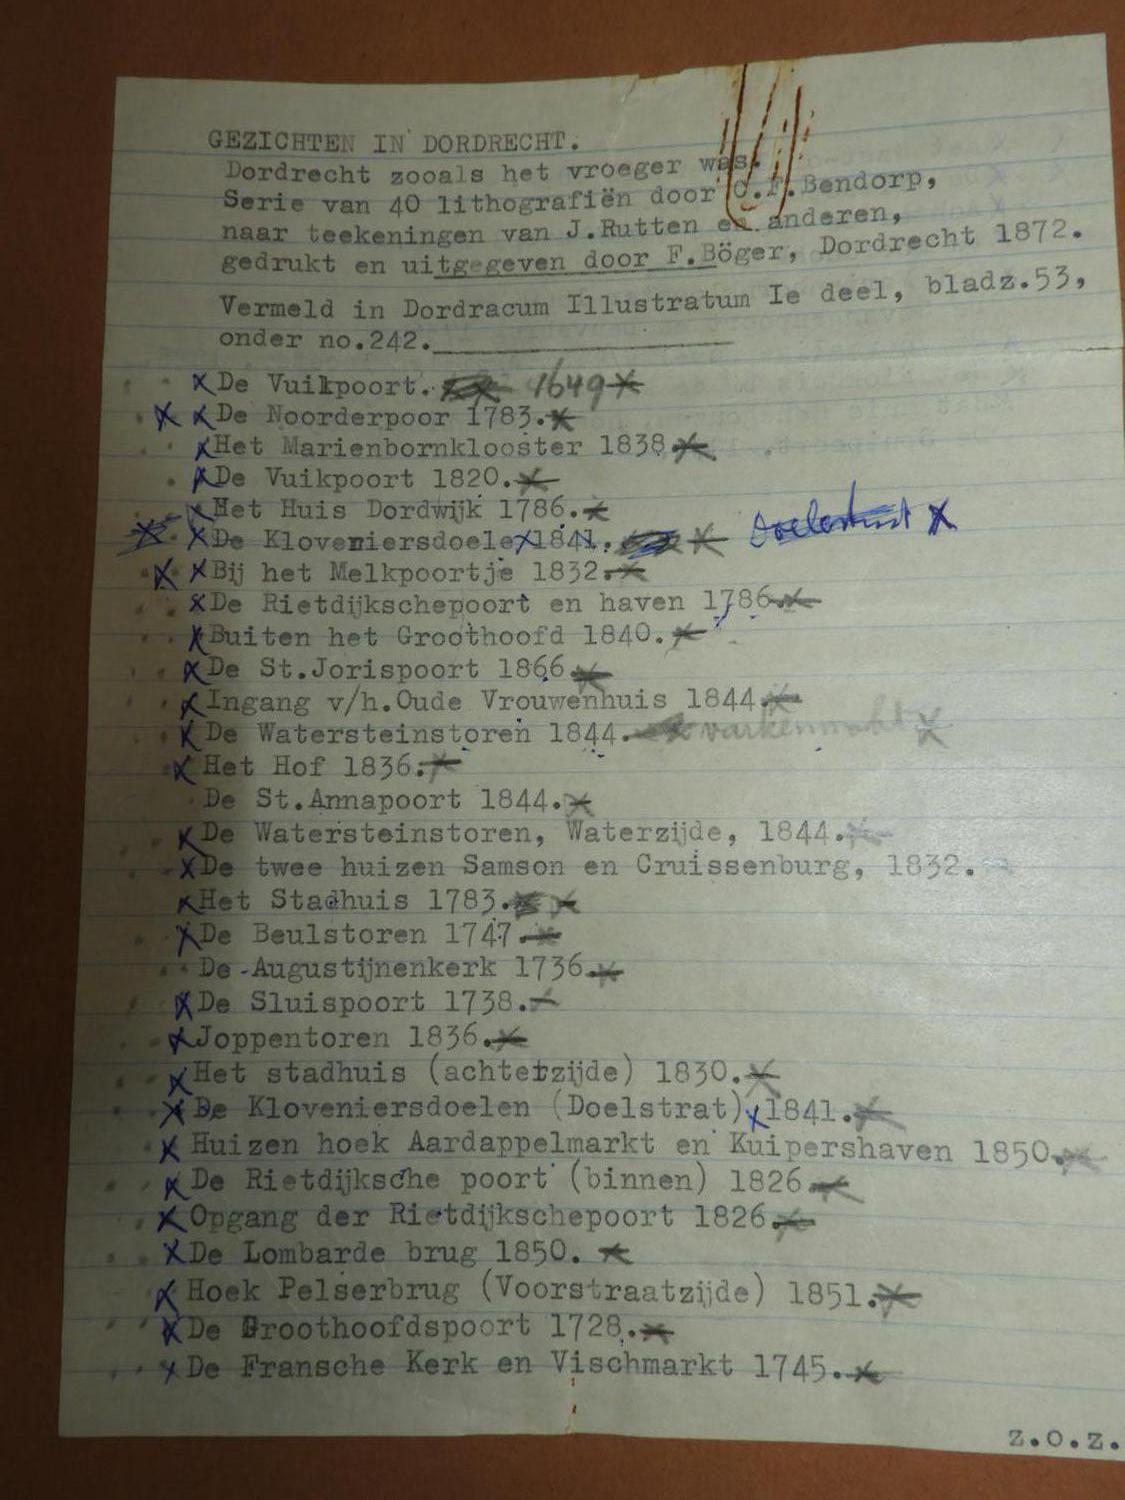 GEZICHTEN IN DORDRECHT.
Dordrecht zooals het vroeger was.
Serie van 40 lithografiën door C.F.Bendorp,
naar teekeningen van J.Rutten en anderen,
gedrukt en uitgegeven door F.Böger, Dordrecht 1872.
Vermeld in Dordracum Illustratum Ie deel, bladz.53,
onder no.242.
De Vuikpoort. 1649
De Noorderpoor 1783.
Het Marienbornklooster 1838
De Vuikpoort 1820.
Het Huis Dordwijk 1786.
De Kloveniersdoele 1841.
Bij het Melkpoortje 1832.
De Rietdijkschepoort en haven 1786
Buiten het Groothoofd 1840.
De St.Jorispoort 1866
Ingang v/h.Oude Vrouwenhuis 1844.
De Watersteinstoren 1844. varkenmarkt
Het Hof 1836.
De St.Annapoort 1844.
De Watersteinstoren, Waterzijde, 1844.
De twee huizen Samson en Cruissenburg, 1832.
Het Stadhuis 1783.
De Beulstoren 1747.
De Augustijnenkerk 1736
De Sluispoort 1738.
Joppentoren 1836.
Het stadhuis (achterzijde) 1830.
De Kloveniersdoelen (Doelstrat) 1841.
Huizen hoek Aardappelmarkt en Kuipershaven 1850.
De Rietdijksche poort (binnen) 1826
Opgang der Rietdijkschepoort 1826
De Lombarde brug 1850.
Hoek Pelserbrug (Voorstraatzijde) 1851.
De Groothoofdspoort 1728.
De Fransche Kerk en Vischmarkt 1745.
z.o.z.